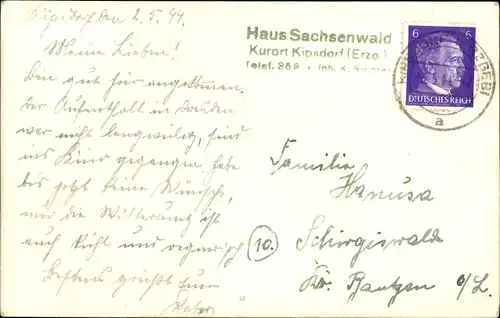 Kipsdorf den 2.5.44.
Meine Lieben!
Bin gut hier angekommen,
der Aufenthalt in Dresden
war nicht langweilig, sind
ins Kino gegangen, habe
bis jetzt keine Wünsche,
nur die Witterung ist
auch kühl und regnerisch
Bestens grüßt Euer
Vater
Haus Sachsenwald
Kurort Kipsdorf (Erzg.)
Telef. 368 · Inh. K.
6 6
DEUTSCHES REICH
a
Familie
Hanusa
(10)
Schirgiswalde
Kr. Bautzen O/L.